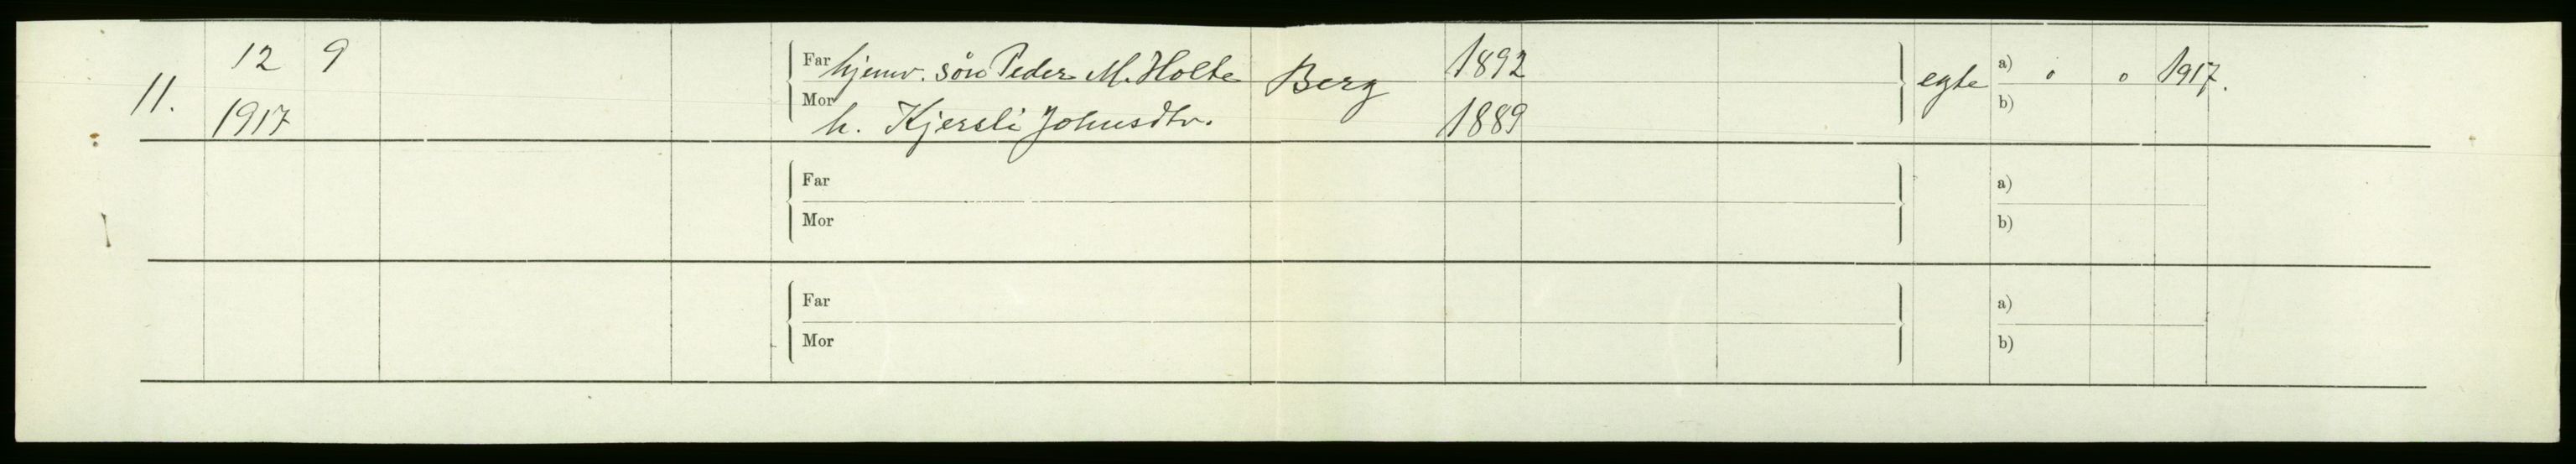 11. 12 9 Far hjemv. søn Peder M. Holte Berg 1892 egte a) " " 1917.
1917 Mor h. Kjersti Johnsdtr. 1889 b)
Far a)
Mor b)
Far a)
Mor b)